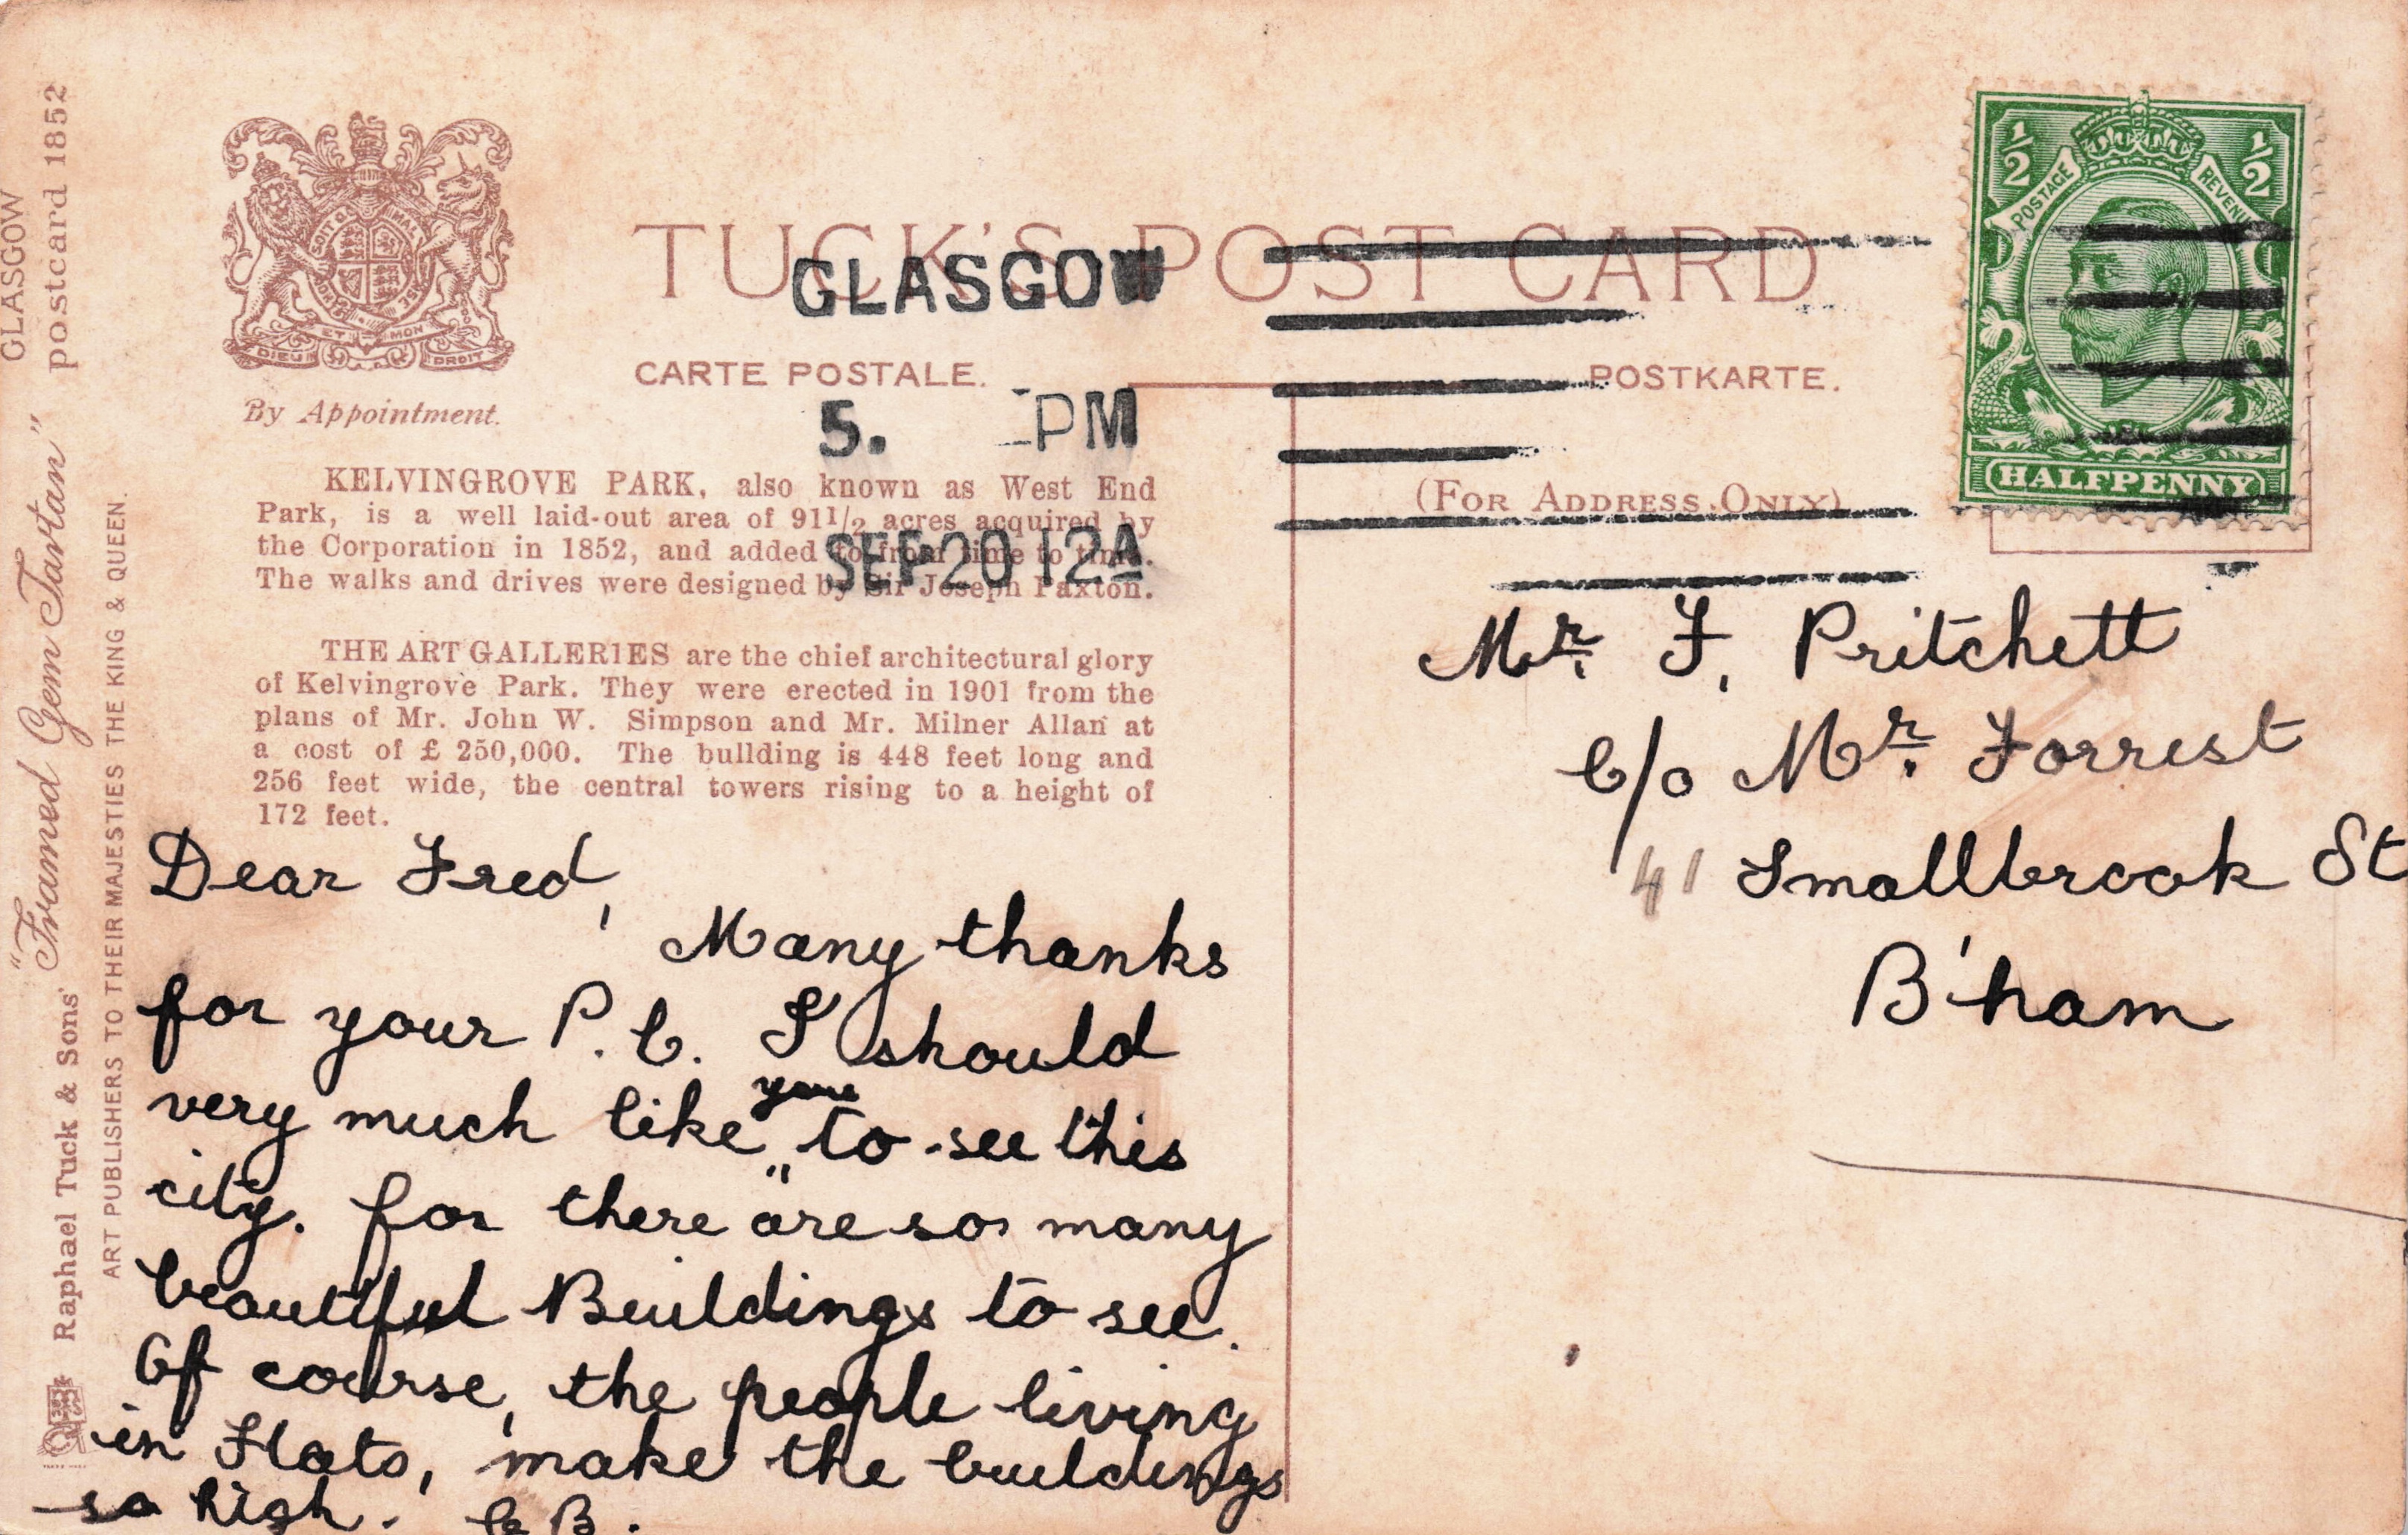 GLASGOW
postcard 1852
"Framed Gem Tartan"
Raphael Tuck & Sons'
ART PUBLISHERS TO THEIR MAJESTIES THE KING & QUEEN.
DIEU ET MON DROIT
By Appointment.
TUCK'S POST CARD
CARTE POSTALE.
POSTKARTE.
(FOR ADDRESS ONLY)
GLASGOW
5. PM
SEP 20 12A
½ ½
POSTAGE REVENUE
HALFPENNY
KELVINGROVE PARK, also known as West End
Park, is a well laid-out area of 91½ acres acquired by
the Corporation in 1852, and added to from time to time.
The walks and drives were designed by Sir Joseph Paxton.
THE ART GALLERIES are the chief architectural glory
of Kelvingrove Park. They were erected in 1901 from the
plans of Mr. John W. Simpson and Mr. Milner Allan at
a cost of £ 250,000. The building is 448 feet long and
256 feet wide, the central towers rising to a height of
172 feet.
Dear Fred,
Many thanks
for your P.C. I should
very much like you to see this
city. for there are so many
beautiful Buildings to see.
Of course, the people living
in Flats, make the buildings
so high. B.
Mr. F. Pritchett
C/o Mr. Forrest
41 Smallbrook St
B'ham